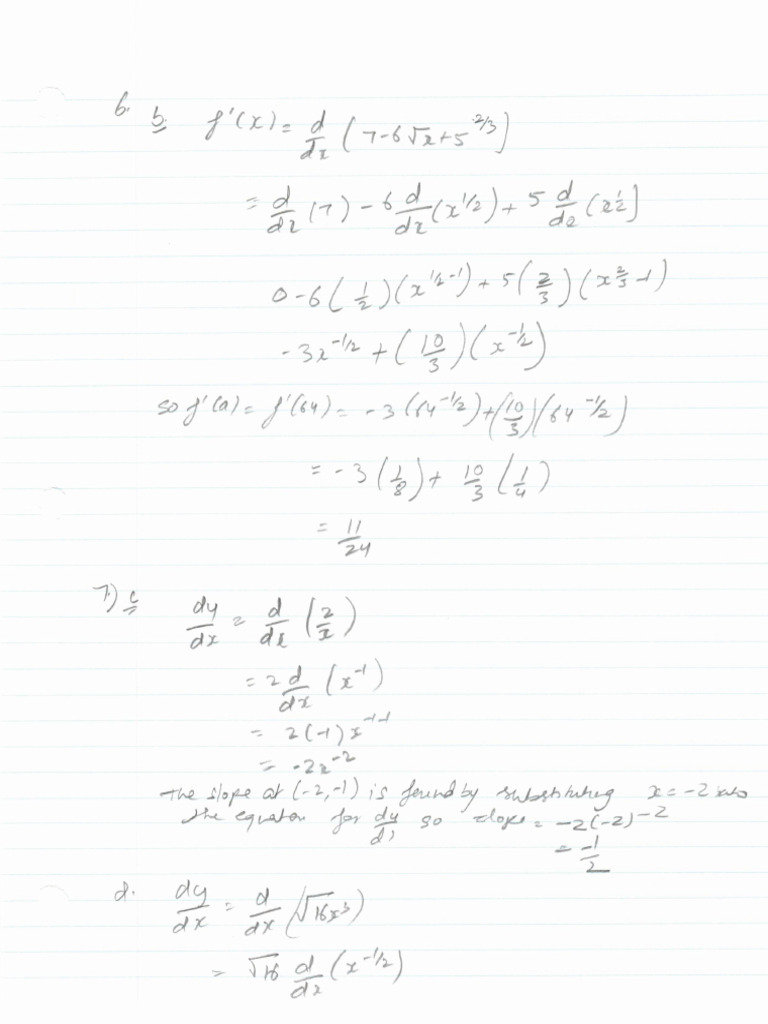 6. b. f'(x) = d/dx (7-6√x+5^2/3)
= d/dx (7) - 6 d/dx (x^1/2) + 5 d/dx (x^1/2]
0-6(1/2)(x^1/2-1) + 5(2/3)(x^2/3-1)
-3x^-1/2 + (10/3)(x^-1/2)
so f'(a) = f'(64) = -3(64^-1/2)+(10/3)(64^-1/2)
= -3(1/8) + 10/3 (1/4)
= 11/24
7.) c dy/dx = d/dx (2/x)
= 2 d/dx (x^-1)
= 2(-1)x^-1-1
= -2x^-2
The slope at (-2,-1) is found by substituting x=-2 into
the equation for dy/dx so slope = -2(-2)^-2
= -1/2
d. dy/dx = d/dx (√16x^3)
= √16 d/dx (x^-1/2)